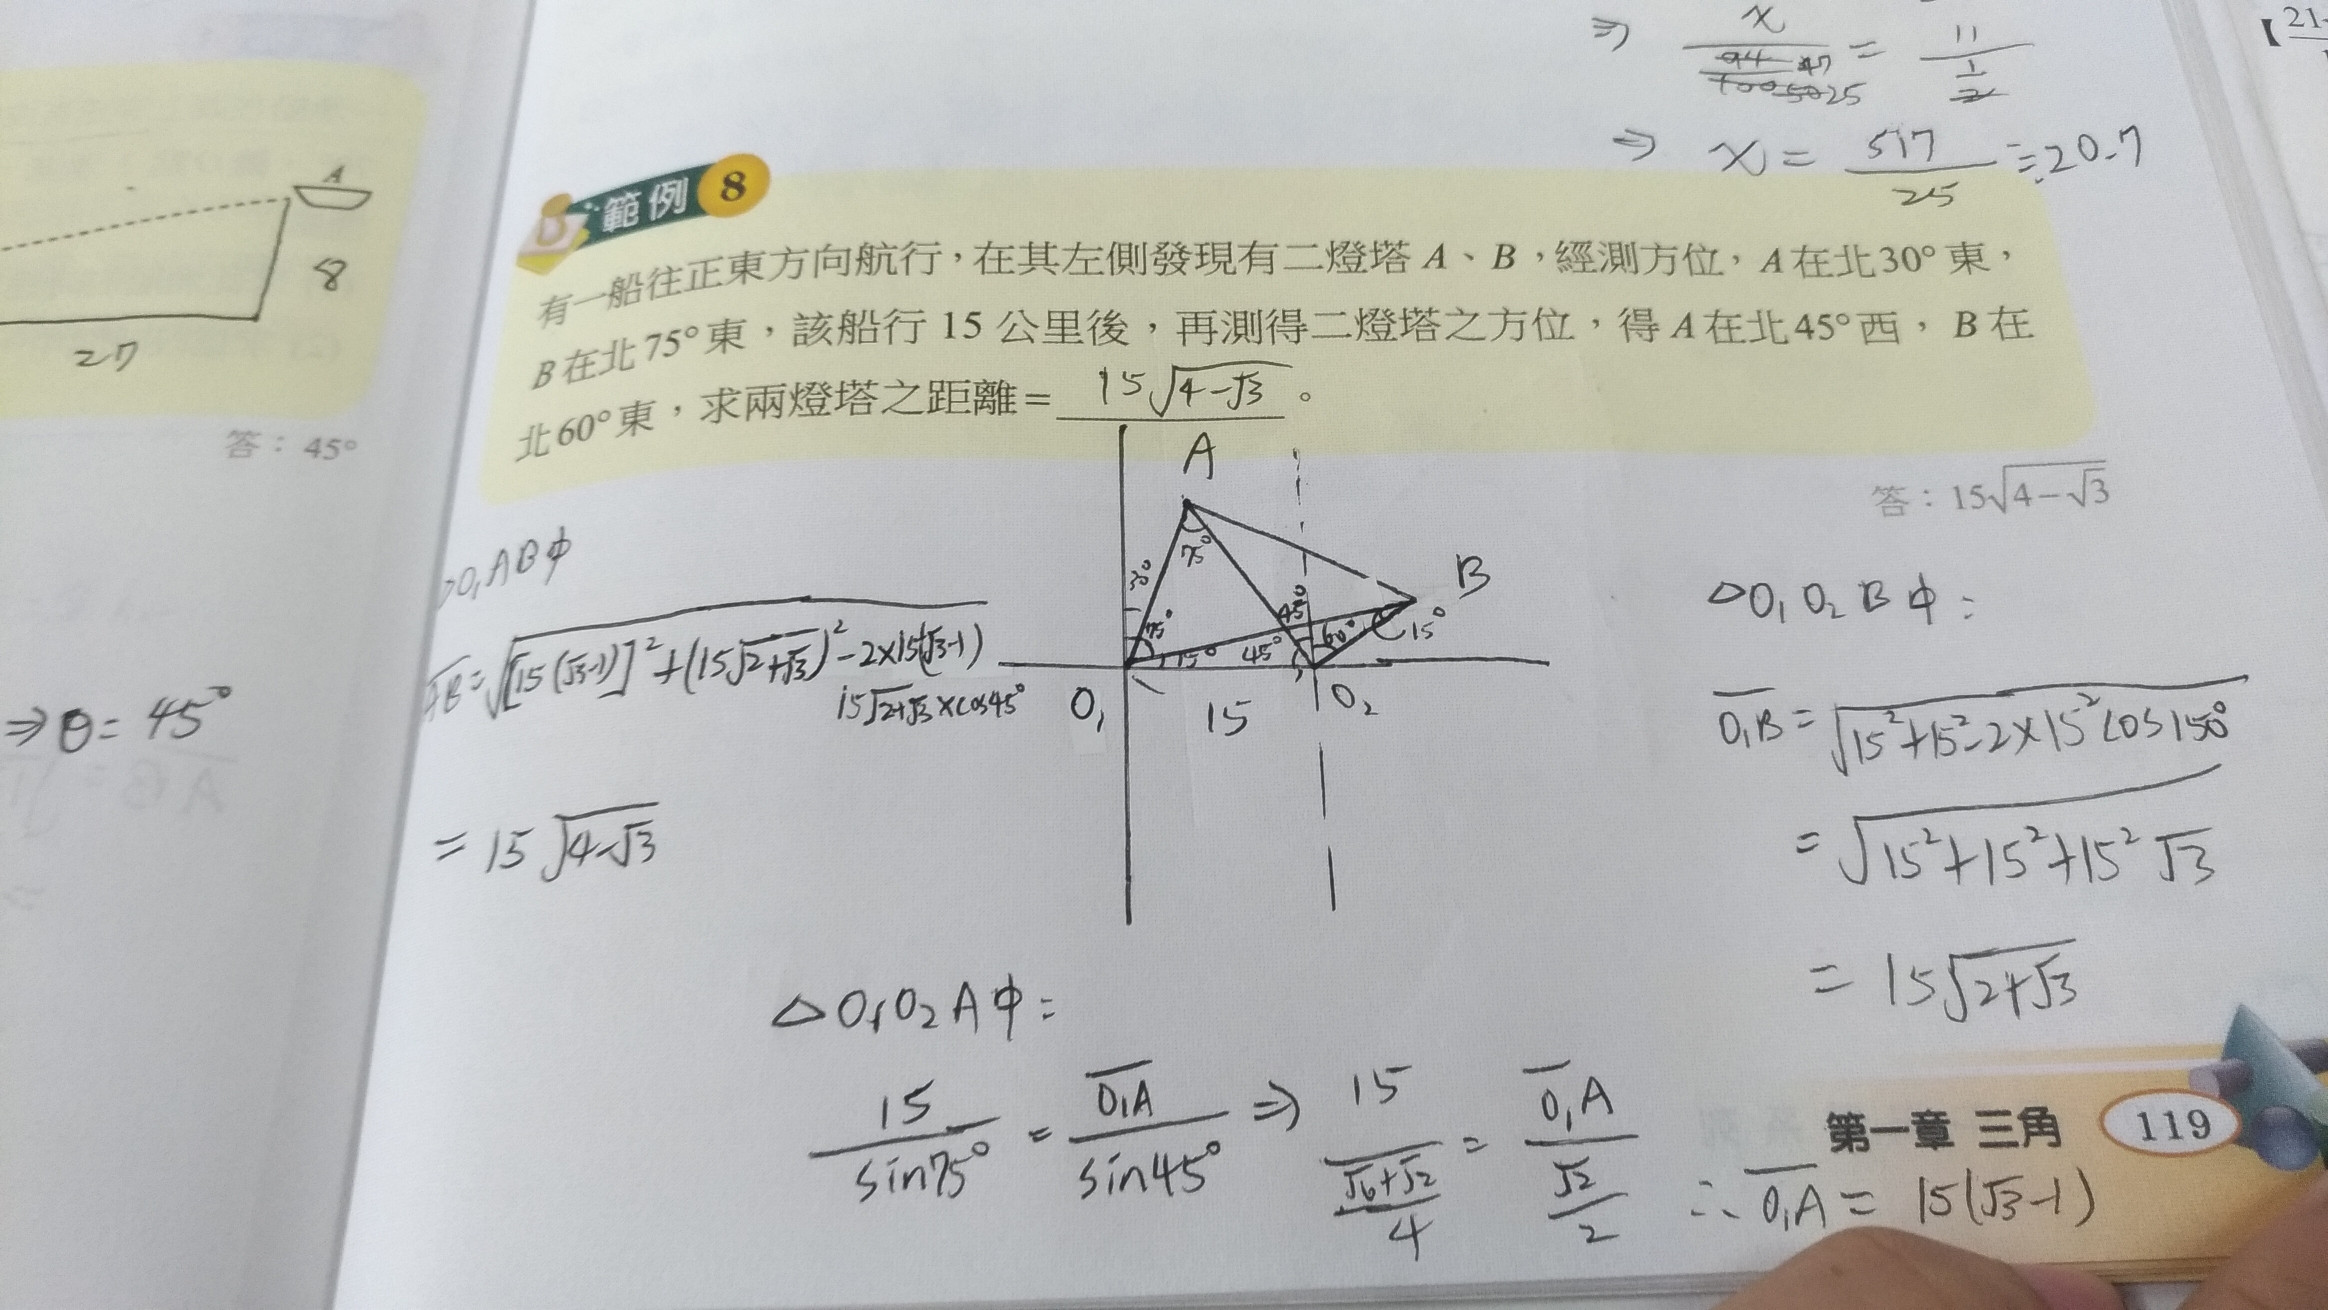 ⇒ x/(47/25) = 11/(1/2)
⇒ x = 517/25 ≒ 20.7
A
8
27
答：45°
⇒ θ = 45°
範例 8
有一船往正東方向航行，在其左側發現有二燈塔 A、B，經測方位，A 在北30° 東，
B 在北 75° 東，該船行 15 公里後，再測得二燈塔之方位，得 A 在北45° 西，B 在
北 60° 東，求兩燈塔之距離 = 15√(4-√3) 。
答：15√(4-√3)
A
75°
30°
B
45°
75°
60°
15°
15°
45°
O₁
15
O₂
O₁AB中
AB = √([15(√3-1)]² + (15√(2+√3))² - 2×15(√3-1)
15√(2+√3) × cos45°
= 15√(4-√3)
△O₁O₂B中：
O₁B = √(15²+15²-2×15² cos150°)
= √(15²+15²+15²√3)
= 15√(2+√3)
△O₁O₂A中：
15/sin75° = O₁A/sin45° ⇒ 15/((√6+√2)/4) = O₁A/(√2/2) ∴ O₁A = 15(√3-1)
第一章 三角 119